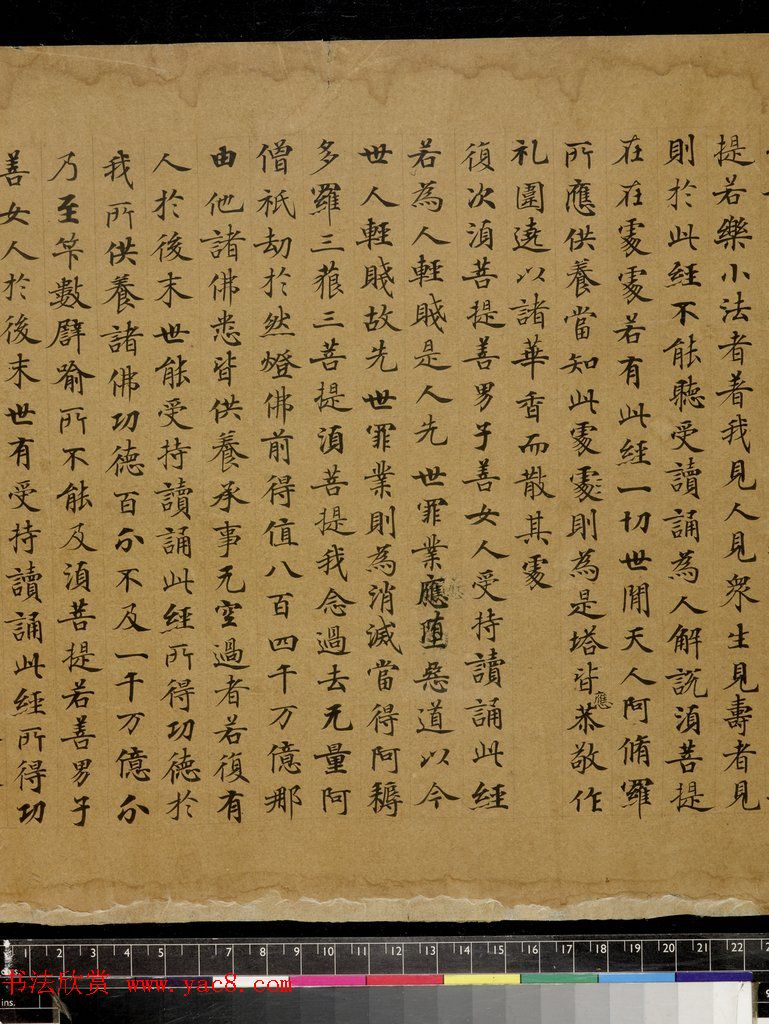 提若樂小法者著我見人見衆生見壽者見
則於此經不能聽受讀誦為人解說湏菩提
在在處處若有此經一切世閒天人阿脩羅
所應供養當知此處處則為是塔皆應恭敬作
礼圍遶以諸華香而散其處
復次湏菩提善男子善女人受持讀誦此經
若為人輕賤是人先世罪業應墮惡道以今
世人輕賤故先世罪業則為消滅當得阿耨
多羅三藐三菩提湏菩提我念過去无量阿
僧祇劫於然燈佛前得值八百四千万億那
由他諸佛悉皆供養承事无空過者若復有
人於後末世能受持讀誦此經所得功德於
我所供養諸佛功德百分不及一千万億分
乃至筭數譬喻所不能及湏菩提若善男子
善女人於後末世有受持讀誦此經所得功
1 2 3 4 5 7 8 9 10 11 12 13 14 15 16 17 18 19 20 21 22
ins.
书法欣赏 www.yac8.com